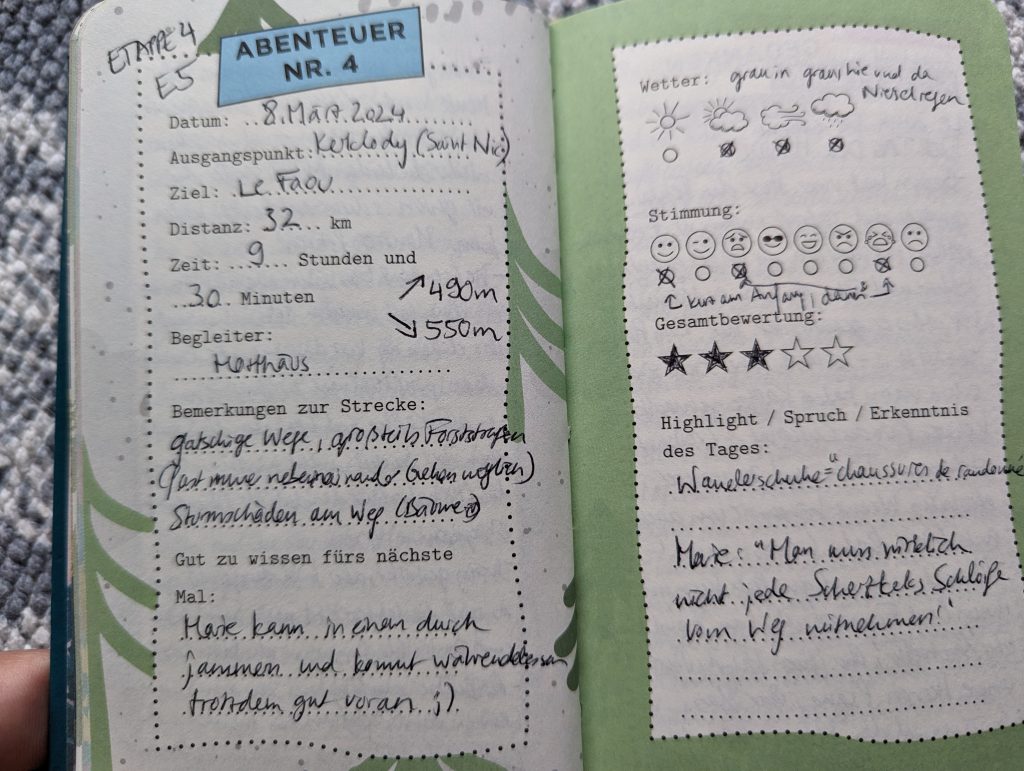 ETAPPE 4
E5
ABENTEUER
NR. 4
Datum: 8. März 2024
Ausgangspunkt: Kerclody (Saint Nic)
Ziel: Le Faou
Distanz: 32 km
Zeit: 9 Stunden und
30 Minuten
↗490m
↘550m
Begleiter:
Matthäus
Bemerkungen zur Strecke:
gatschige Wege, großteils Forststraßen
(fast immer nebeneinander Gehen möglich)
Sturmschäden am Weg (Bäume)
Gut zu wissen fürs nächste
Mal:
Marie kann in einen durch
jammern und kommt währenddessen
trotzdem gut voran ;)
Wetter: grau in grau, hie und da
Nieselregen
Stimmung:
kurz am Anfang, dann
Gesamtbewertung:
Highlight / Spruch / Erkenntnis
des Tages:
Wanderschuhe = "chaussures de randonnée
Marie: "Man muss wirklich
nicht jede
vom Weg mitnehmen!"